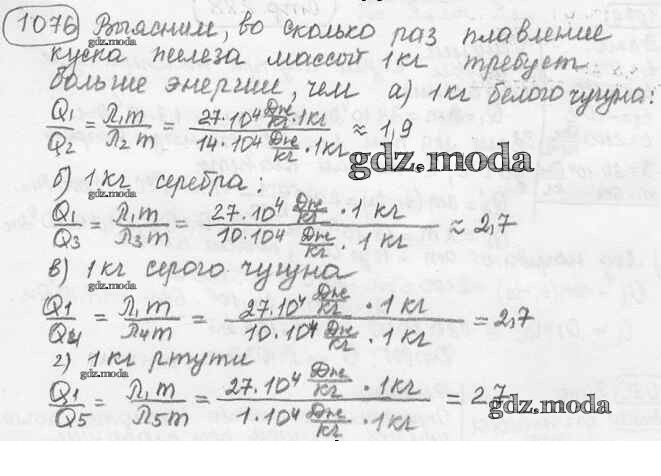 1076 Выясним, во сколько раз плавление
gdz.moda
куска железа массой 1 кг требует
больше энергии, чем а) 1 кг белого чугуна:
gdz.moda
Q₁/Q₂ = λ₁m/λ₂m = 27·10⁴ Дж/кг·1кг / 14·10⁴ Дж/кг·1 кг ≈ 1,9
gdz.moda
б) 1 кг серебра.
gdz.moda
Q₁/Q₃ = λ₁m/λ₃m = 27·10⁴ Дж/кг · 1 кг / 10·10⁴ Дж/кг · 1 кг ≈ 2,7
в) 1 кг серого чугуна
gdz.moda
Q₁/Q₄ = λ₁m/λ₄m = 27·10⁴ Дж/кг · 1 кг / 10·10⁴ Дж/кг · 1 кг = 2,7
г) 1 кг ртути
gdz.moda
Q₁/Q₅ = λ₁m/λ₅m = 27·10⁴ Дж/кг · 1 кг / 1·10⁴ Дж/кг · 1 кг = 27
gdz.moda